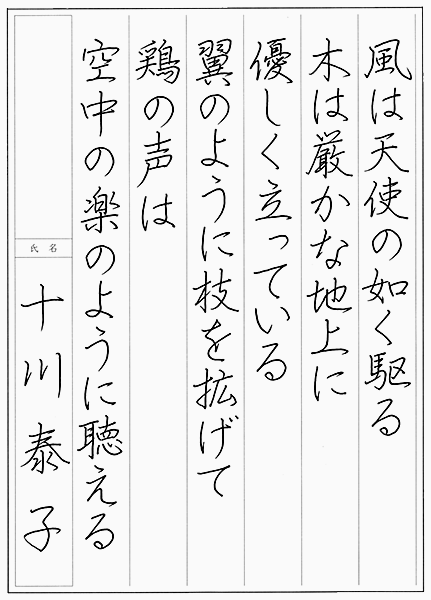 風は天使の如く駆る
木は厳かな地上に
優しく立っている
翼のように枝を拡げて
鶏の声は
空中の楽のように聴える
氏名
十川泰子